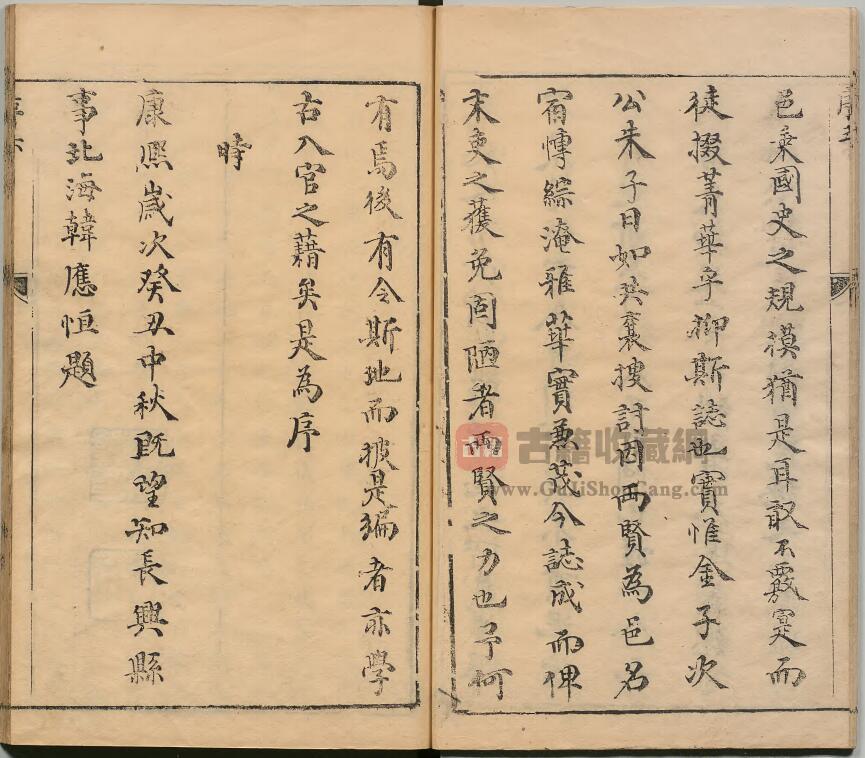 序五
邑乘國史之規模猶是耳敢不覈寔而
徒掇菁華乎抑斯誌也實惟金子次
公朱子日如癸襄搜討因兩賢為邑名
宿慱綜淹雅華實兼茂今誌成而俾
末吏之獲免固陋者兩賢之力也予何
有焉後有令斯地而披是編者亦學
古入官之藉矣是為序
時
康熙歲次癸丑中秋既望知長興縣
事北海韓應恒題
序六
古籍收藏網
www.GuJiShouCang.com